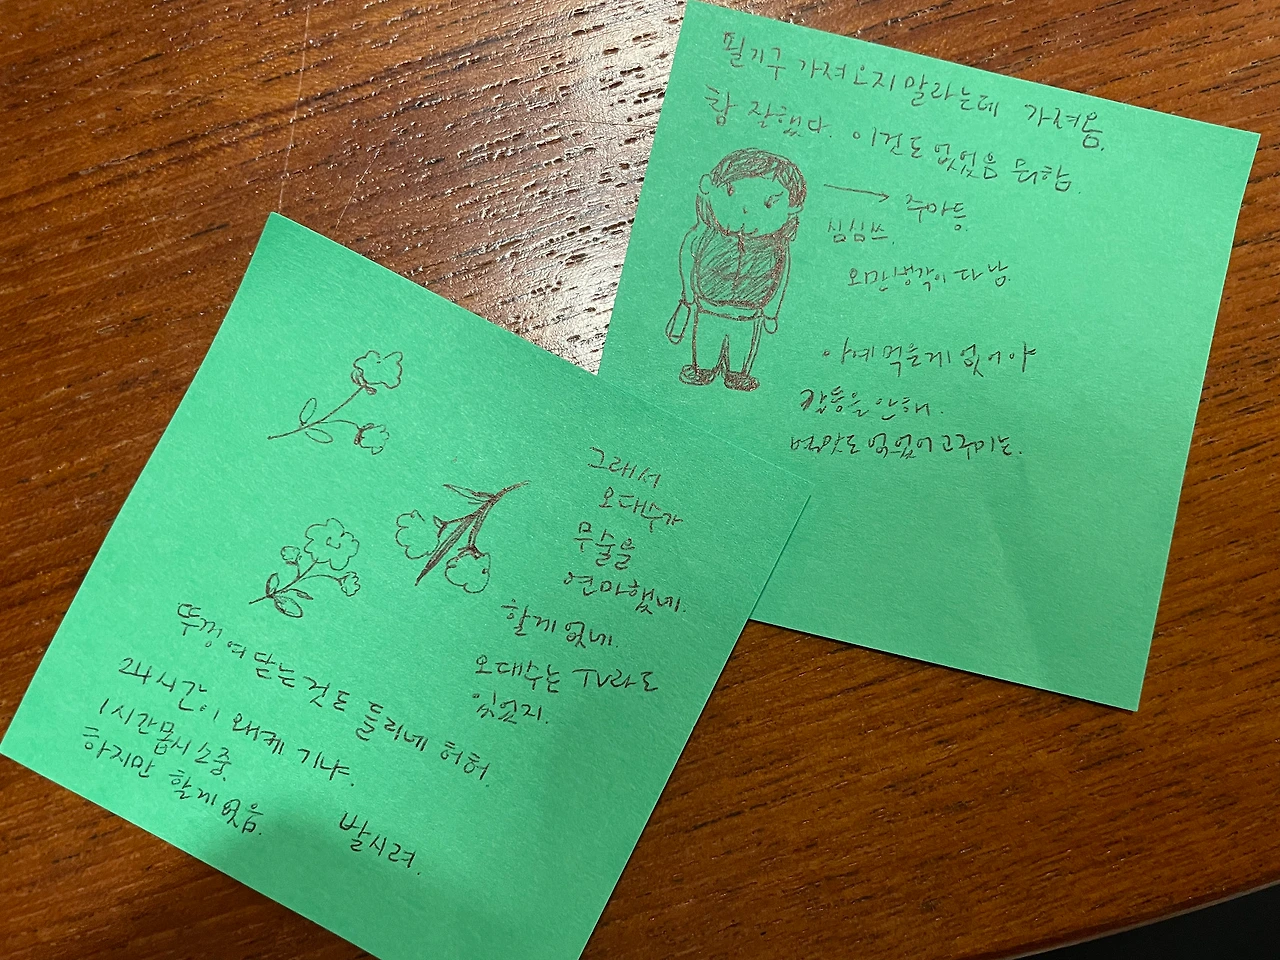 필기구 가져오지 말라는데 가져옴.
참 잘했다. 이것도 없었음 뭐함.
주마등
심심쓰.
오만생각이 다 남.
아예 먹을게 없어야
갈등을 안해.
없었어
그래서
오대수가
무술을
연마했네.
할게 없네.
오대수는 TV라도
있었지.
뚜껑 여닫는 것도 들리네 허허.
24시간이 왜케 기냐.
1시간 몹시 소중.
하지만 할게 없음.
발시려.